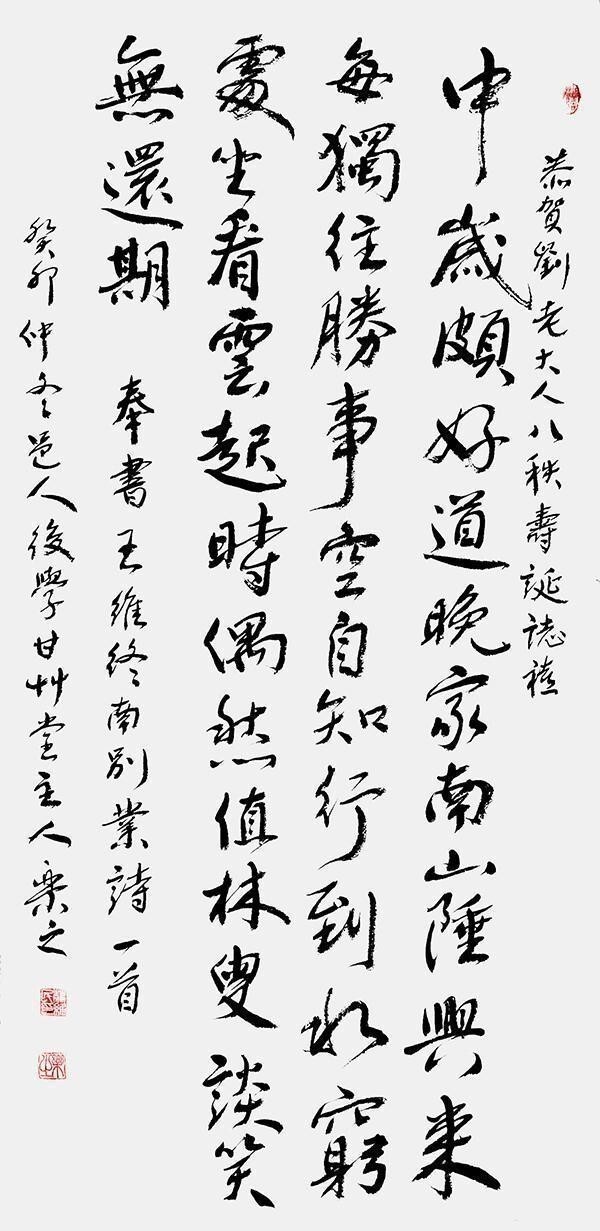 恭賀劉老大人八秩壽誕誌禧
中歲頗好道晚家南山陲興来
每獨往勝事空自知行到水窮
處坐看雲起時偶然值林叟談笑
無還期
奉書王維終南別業詩一首
癸卯仲冬邑人後學甘艸堂主人樂之